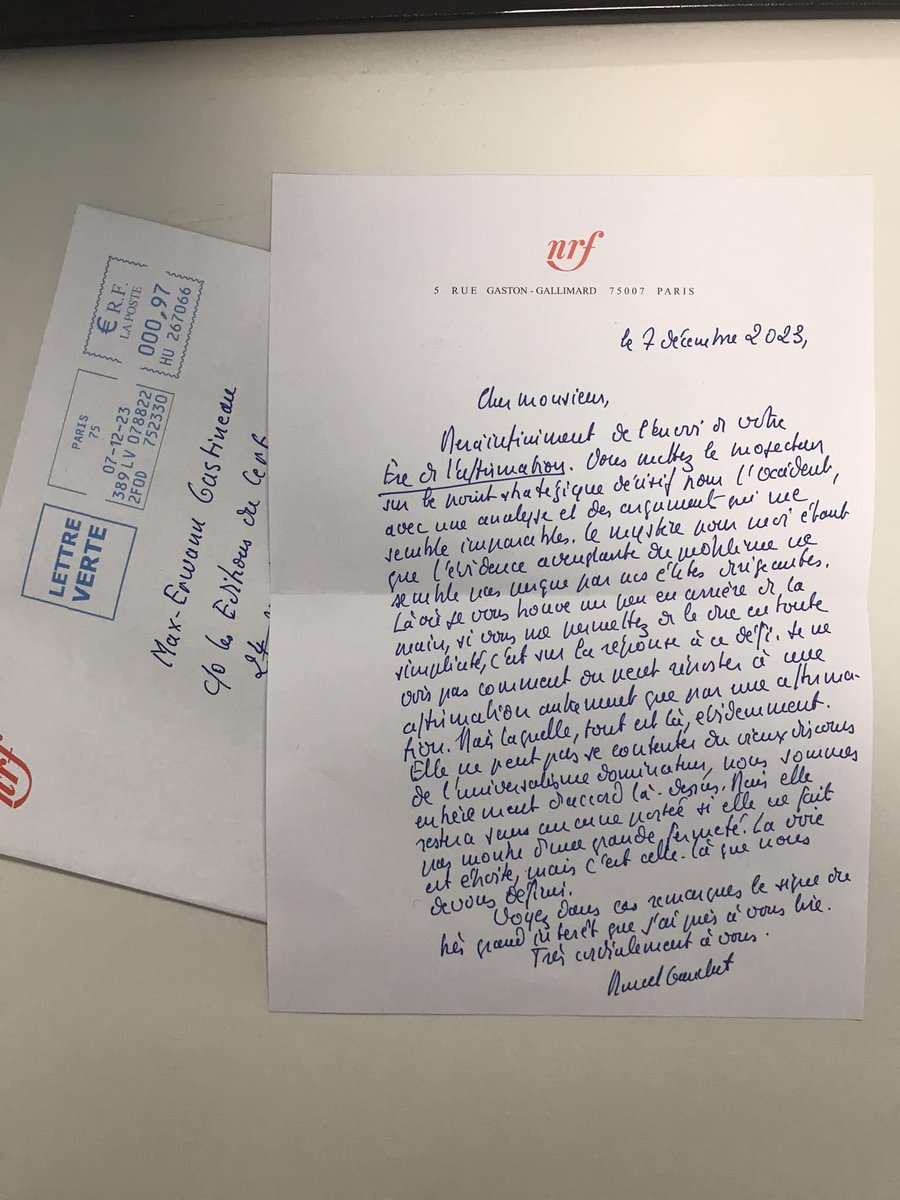 nrf
5 RUE GASTON-GALLIMARD 75007 PARIS
le 7 décembre 2023,
Cher monsieur,
Merci infiniment de l'envoi de votre
Ère de l'affirmation. Vous mettez le projecteur
sur le point stratégique décisif pour l'Occident,
avec une analyse et des arguments qui me
semble imparables. Le mystère pour moi étant
que l'évidence aveuglante du problème ne
semble pas perçue par nos élites dirigeantes.
Là où je vous trouve un peu en arrière de la
main, si vous me permettez de le dire en toute
simplicité, c'est sur la réponse à ce défi. Je ne
vois pas comment on peut riposter à une
affirmation autrement que par une affirma-
tion. Mais laquelle, tout est là, évidemment.
Elle ne peut pas se contenter du vieux discours
de l'universalisme dominateur, nous sommes
entièrement d'accord là-dessus. Mais elle
restera sans aucune portée si elle ne fait
pas montre d'une grande fermeté. La voie
est étroite, mais c'est celle-là que nous
devons définir.
Voyez dans ces remarques le signe du
très grand intérêt que j'ai pris à vous lire.
Très cordialement à vous.
Marcel Gauchet
€ R.F.
LA POSTE
000,97
HU 267066
PARIS
75
07-12-23
389 LV 078822
2F0D 752330
LETTRE
VERTE
Max-Erwann Gastineau
c/o les Editions du Cerf
24
nrf